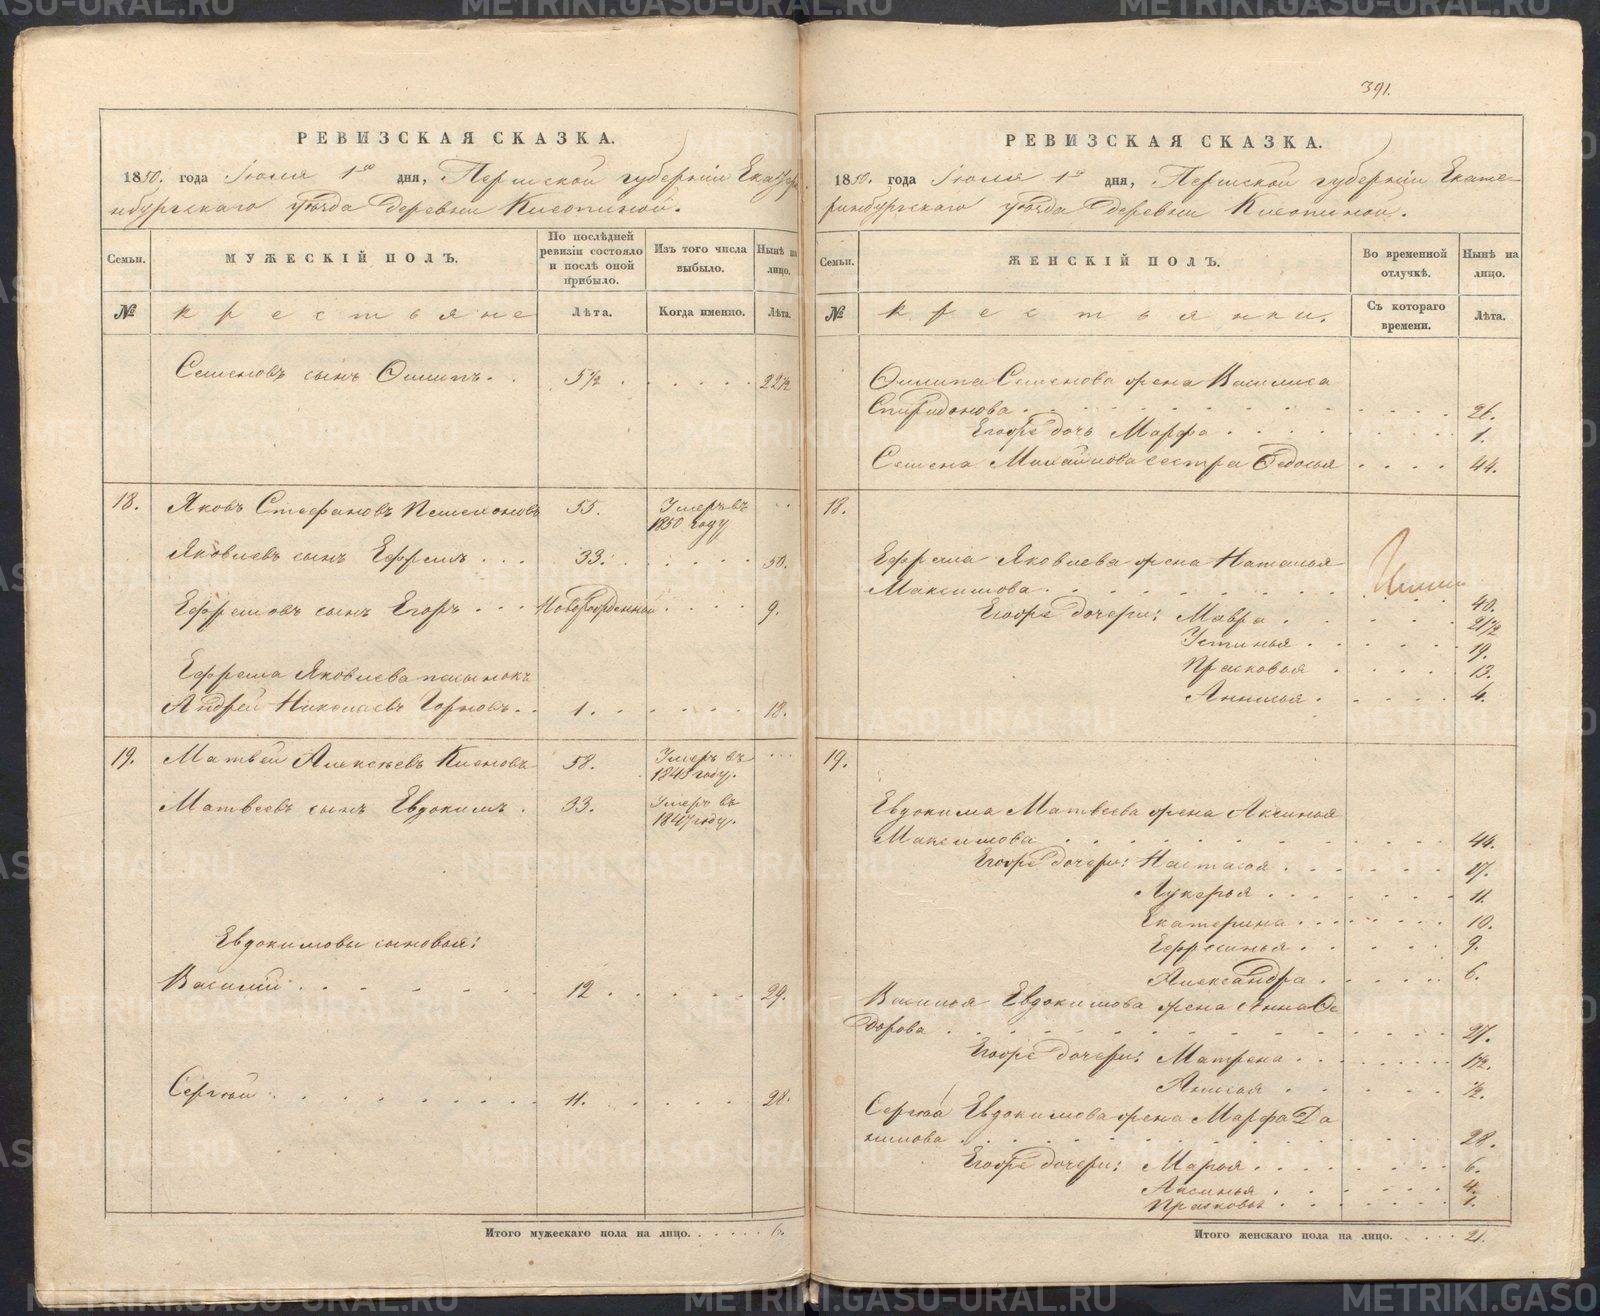 391.
РЕВИЗСКАЯ СКАЗКА.
1850. года Июля 1го дня, Пермской губернiи Екатер
инбургскаго уѣзда деревни
Семьи.
МУЖЕСКIЙ ПОЛЪ.
По послѣдней ревизiи состояло и послѣ оной прибыло.
Изъ того числа выбыло.
Нынѣ на лицо.
№
крестьяне
Лѣта.
Когда именно.
Лѣта.
Семеновъ сынъ Осипъ . . 5½ . . . . . . 22½
18. Яковъ Стефановъ 55. Умеръ въ 1850 году . .
Яковлевъ сынъ Ефремъ . . . 33. . . . . . 50.
Ефремовъ сынъ Егоръ . . . Новорожденный . . . . 9.
Ефрема Яковлева пасынокъ
Андрей Николаевъ . . 1. . . . . . 18.
19. Матвей Алексѣевъ 58. Умеръ въ 1845 году. . . .
Матвеевъ сынъ Евдокимъ . 33. Умеръ въ 1847 году.
Евдокимовы сыновья:
Василiй . . . . . . . 12 . . . . . 29.
Сергѣй . . . . . . . . . 11. . . . . 28.
Итого мужескаго пола на лицо. . . . . . 6.
РЕВИЗСКАЯ СКАЗКА.
1850. года Июля 1го дня, Пермской губернiи Екате-
ринбургскаго уѣзда деревни
Семьи.
ЖЕНСКIЙ ПОЛЪ.
Во временной отлучкѣ.
Нынѣ на лицо.
№
крестьянки.
Съ котораго времени.
Лѣта.
Осипа Семенова жена Василиса
Спиридонова . . . . . . . . . . . . 26.
Егоже дочь Марфа . . . . . . . 1.
Семена Михайлова сестра Федосья . . . . 44.
18.
Ефрема Яковлева жена Наталья
Максимова . . . . . . . . . . 40.
Егоже дочери: Мавра . . . . . . 21½
Устинья . . . . . 19.
Прасковья . . . . . 13.
Анисья . . . . . 4.
19.
Евдокима Матвеева жена Аксинья
Максимова . . . . . . . . . . . . 44.
Егоже дочери: Настасья . . . . . . 17.
Лукерья . . . . . . . 11.
Екатерина . . . . . . . 10.
Ефросинья . . . . . 9.
Александра . . . . . 6.
Василья Евдокимова жена Анна Ѳе
дорова . . . . . . . . . . . . . 27.
Егоже дочери: Матрена . . . . . . . 1½.
Анисья . . . . . ½.
Сергѣя Евдокимова жена Марфа Да
нилова . . . . . . . . . . . . . 28.
Егоже дочери: Марья . . . . . . . 6.
Аксинья . . . . . . 4.
Прасковья . . . . . . . 1.
Итого женскаго пола на лицо. . . . . 21.
METRIKI.GASO-URAL.RU